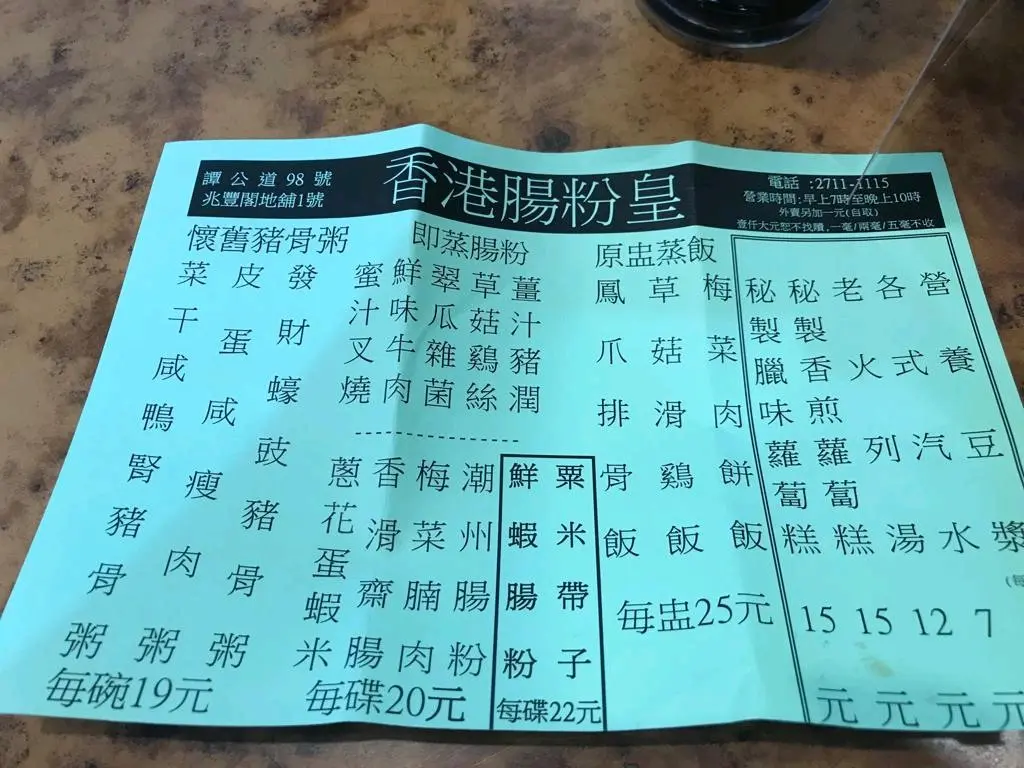 譚公道98號
兆豐閣地舖1號
香港腸粉皇
電話:2711-1115
營業時間:早上7時至晚上10時
外賣另加一元(自取)
壹仟大元恕不找贖,一毫/兩毫/五毫不收
懷舊豬骨粥
菜干咸鴨腎豬骨粥
皮蛋咸瘦肉粥
發財蠔豉豬骨粥
每碗19元
即蒸腸粉
蜜汁叉燒
鮮味牛肉
翠瓜雜菌
草菇鷄絲
薑汁豬潤
蔥花蛋蝦米
香滑齋腸
梅菜腩肉
潮州腸粉
每碟20元
鮮蝦腸粉
粟米帶子
每碟22元
原盅蒸飯
鳳爪排骨飯
草菇滑鷄飯
梅菜肉餅飯
每盅25元
秘製臘味蘿蔔糕15元
秘製香煎蘿蔔糕15元
老火列湯12元
各式汽水7元
營養豆漿